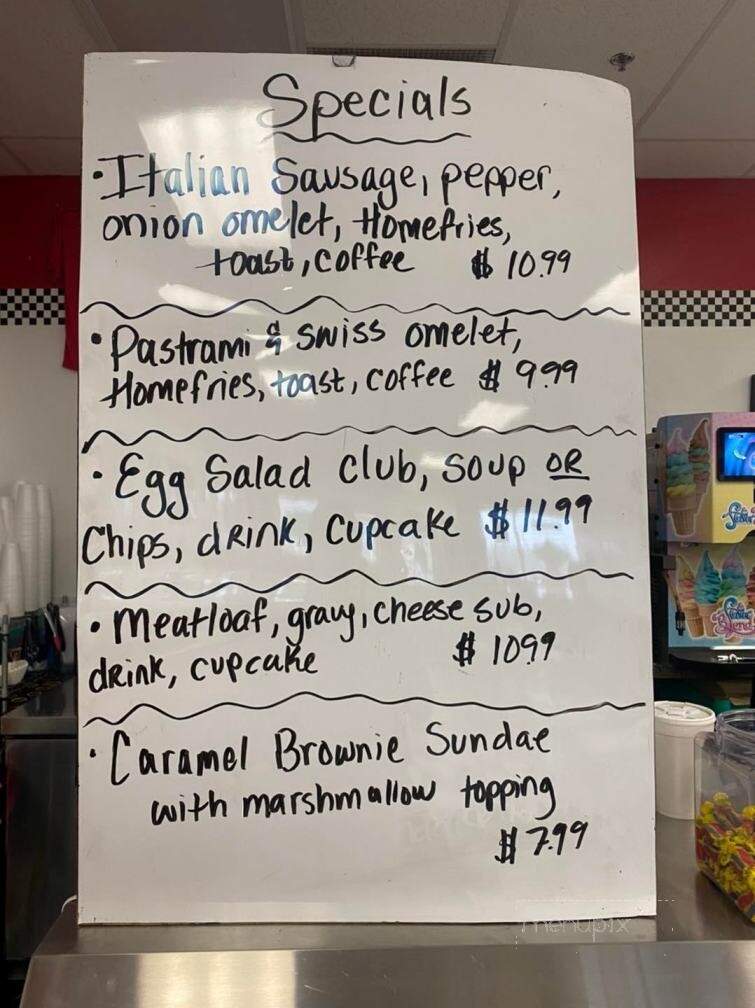 Specials
• Italian Sausage, pepper,
onion omelet, Homefries,
toast, coffee $ 10.99
• Pastrami & Swiss omelet,
Homefries, toast, coffee $ 9.99
• Egg Salad Club, soup OR
Chips, drink, cupcake $ 11.99
• Meatloaf, gravy, cheese sub,
drink, cupcake $ 10.99
• Caramel Brownie Sundae
with marshmallow topping
$ 7.99
Blend
menupix